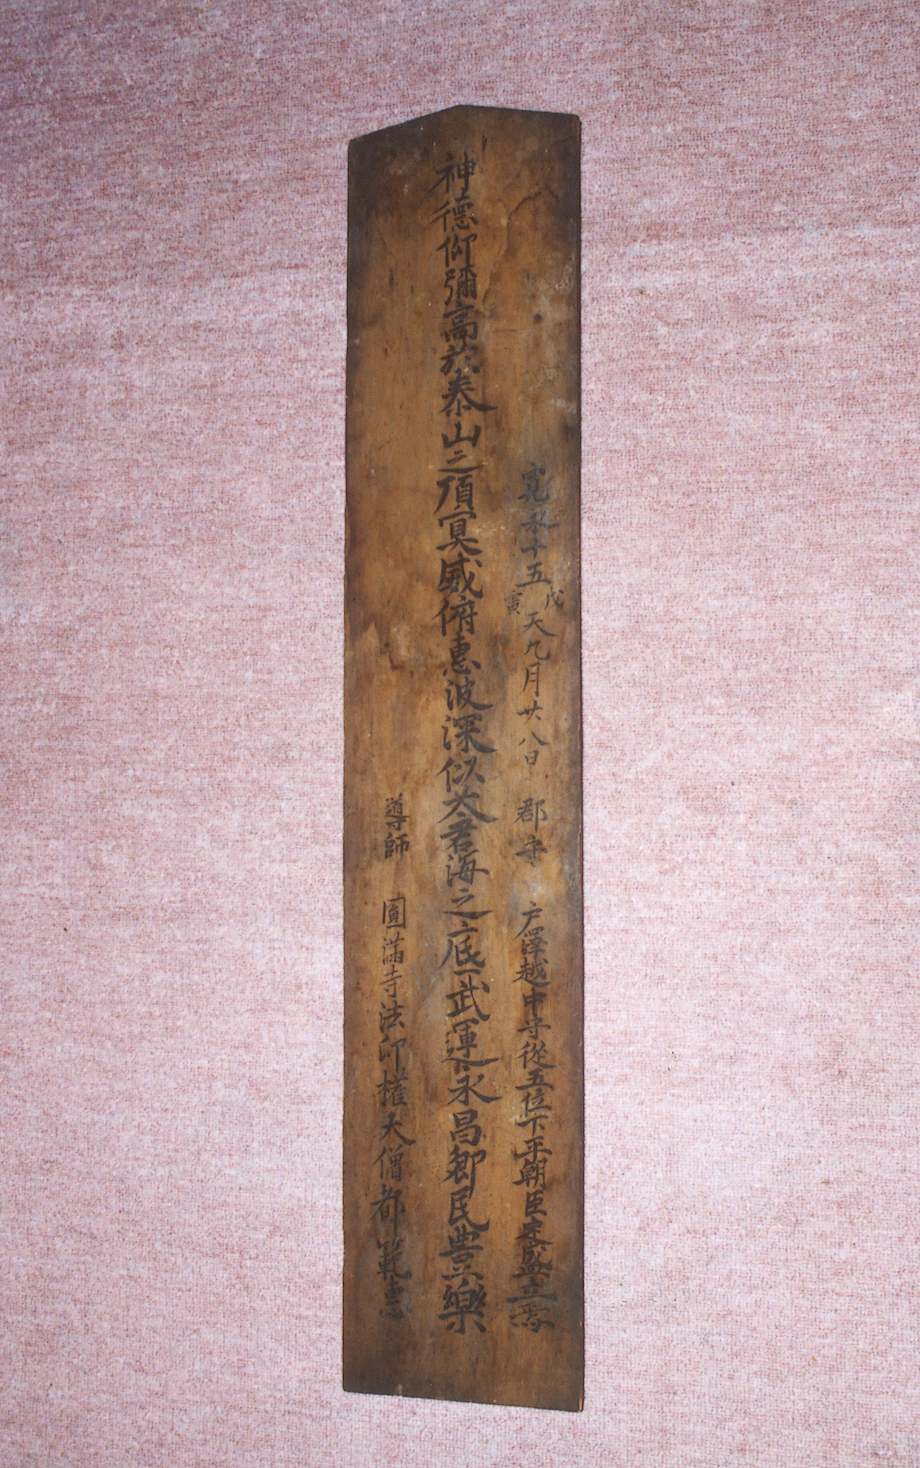 寛永十五戊寅天九月廿八日　郡守　戸澤越中守從五位下平朝臣
神德仰彌高於泰山之頂冥威俯惠波深似大蒼海之底武運永昌鄕民豊樂
導師　圓滿寺法印權大僧都範惠